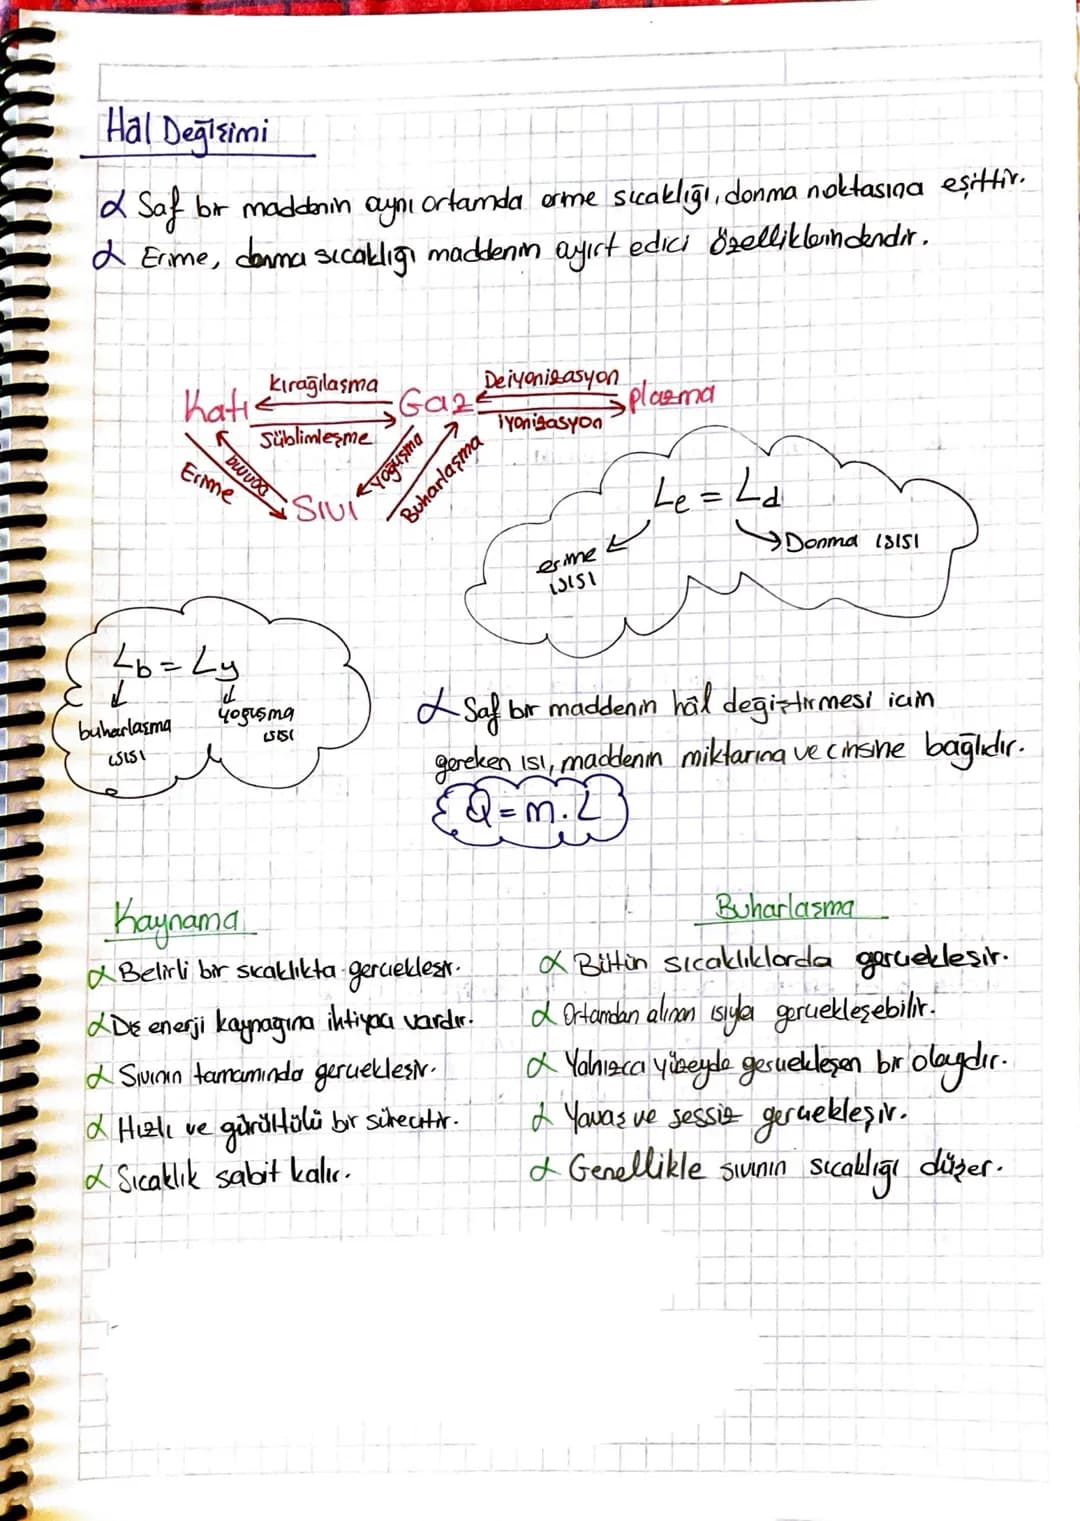 Hal Değişimi
α Saf bir maddenin aynı ortamda erime sıcaklığı, donma noktasına eşittir.
α Erime, donma sıcaklığı maddenin ayırt edici özelliklerindendir.
Kırağılaşma
Deiyonizasyon
Katı
Gaz
plazma
Süblimleşme
iyonizasyon
Erime
Donma
Yoğuşma
Buharlaşma
Sıvı
Le = Ld
erime
ısısı
Donma ısısı
Lb = Ly
buharlaşma
ısısı
yoğuşma
ısısı
α Saf bir maddenin hâl değiştirmesi için
gereken ısı, maddenin miktarına ve cinsine bağlıdır.
Q = m.L
Kaynama
α Belirli bir sıcaklıkta gerçekleşir.
α Dış enerji kaynağına ihtiyacı vardır.
α Sıvının tamamında gerçekleşir.
α Hızlı ve gürültülü bir süreçtir.
α Sıcaklık sabit kalır.
Buharlaşma
α Bütün sıcaklıklarda gerçekleşir.
α Ortamdan alınan ısıyla gerçekleşebilir.
α Yalnızca yüzeyde gerçekleşen bir olaydır.
α Yavaş ve sessiz gerçekleşir.
α Genellikle sıvının sıcaklığı düşer.